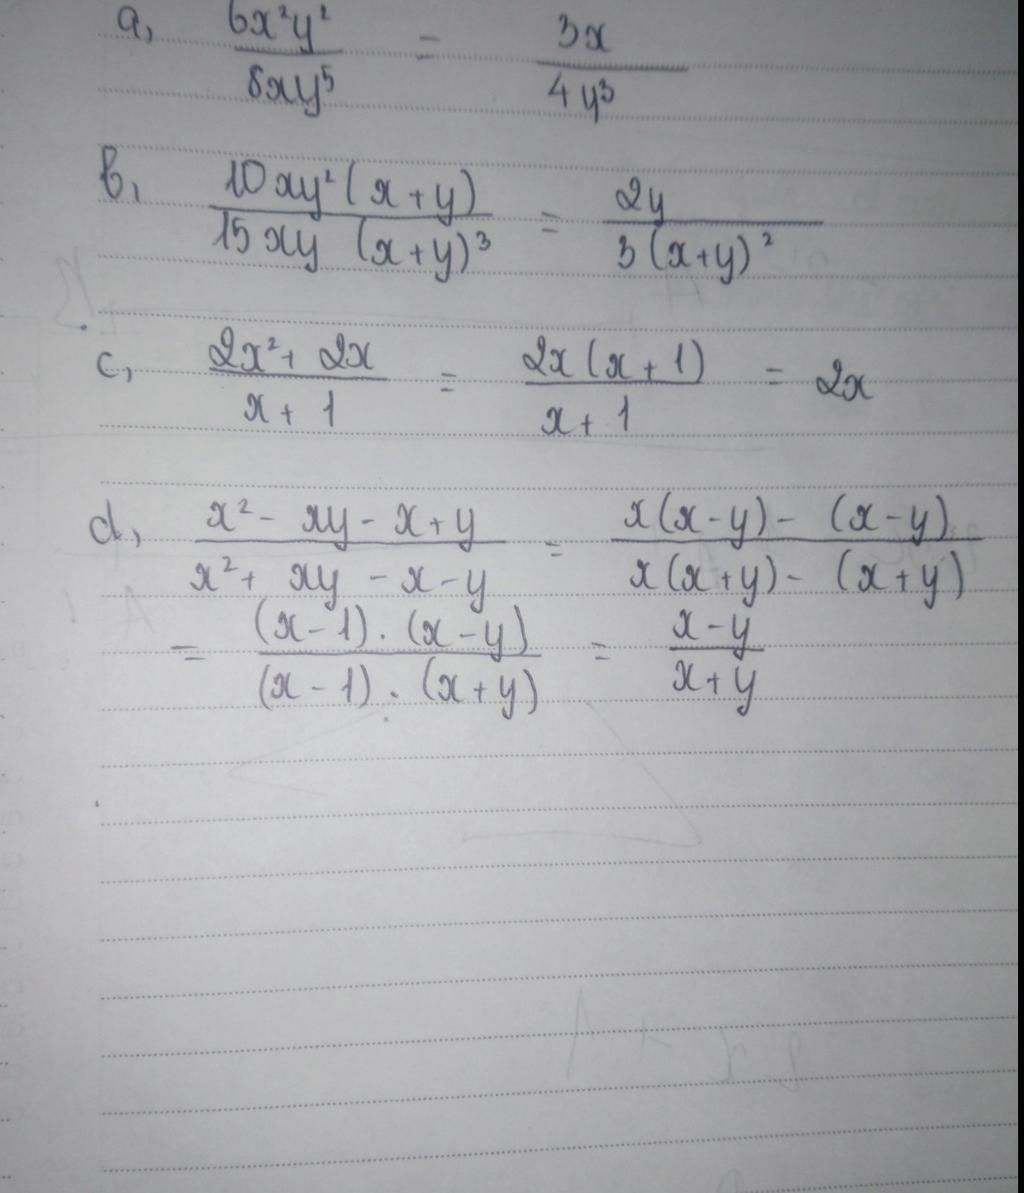 a, 6x²y² / 8xy⁵ = 3x / 4y³
b, 10xy²(x+y) / 15xy (x+y)³ = 2y / 3(x+y)²
c, 2x²+ 2x / x+1 = 2x(x+1) / x+1 = 2x
d, x²- xy-x+y / x²+ xy-x-y = x(x-y)- (x-y) / x(x+y)- (x+y)
= (x-1).(x-y) / (x-1).(x+y) = x-y / x+y